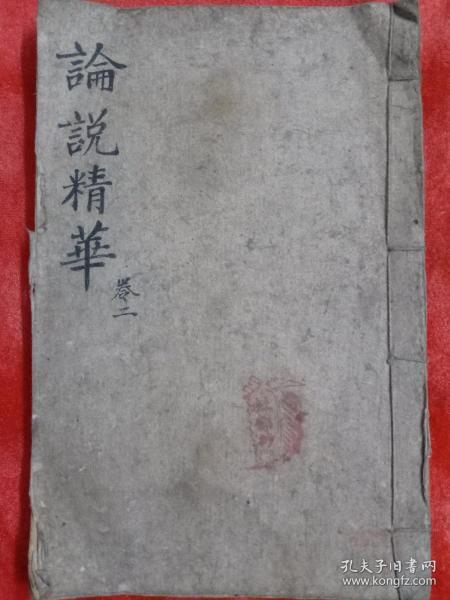 論説精華
卷二
孔夫子旧书网
www.kongfz.com